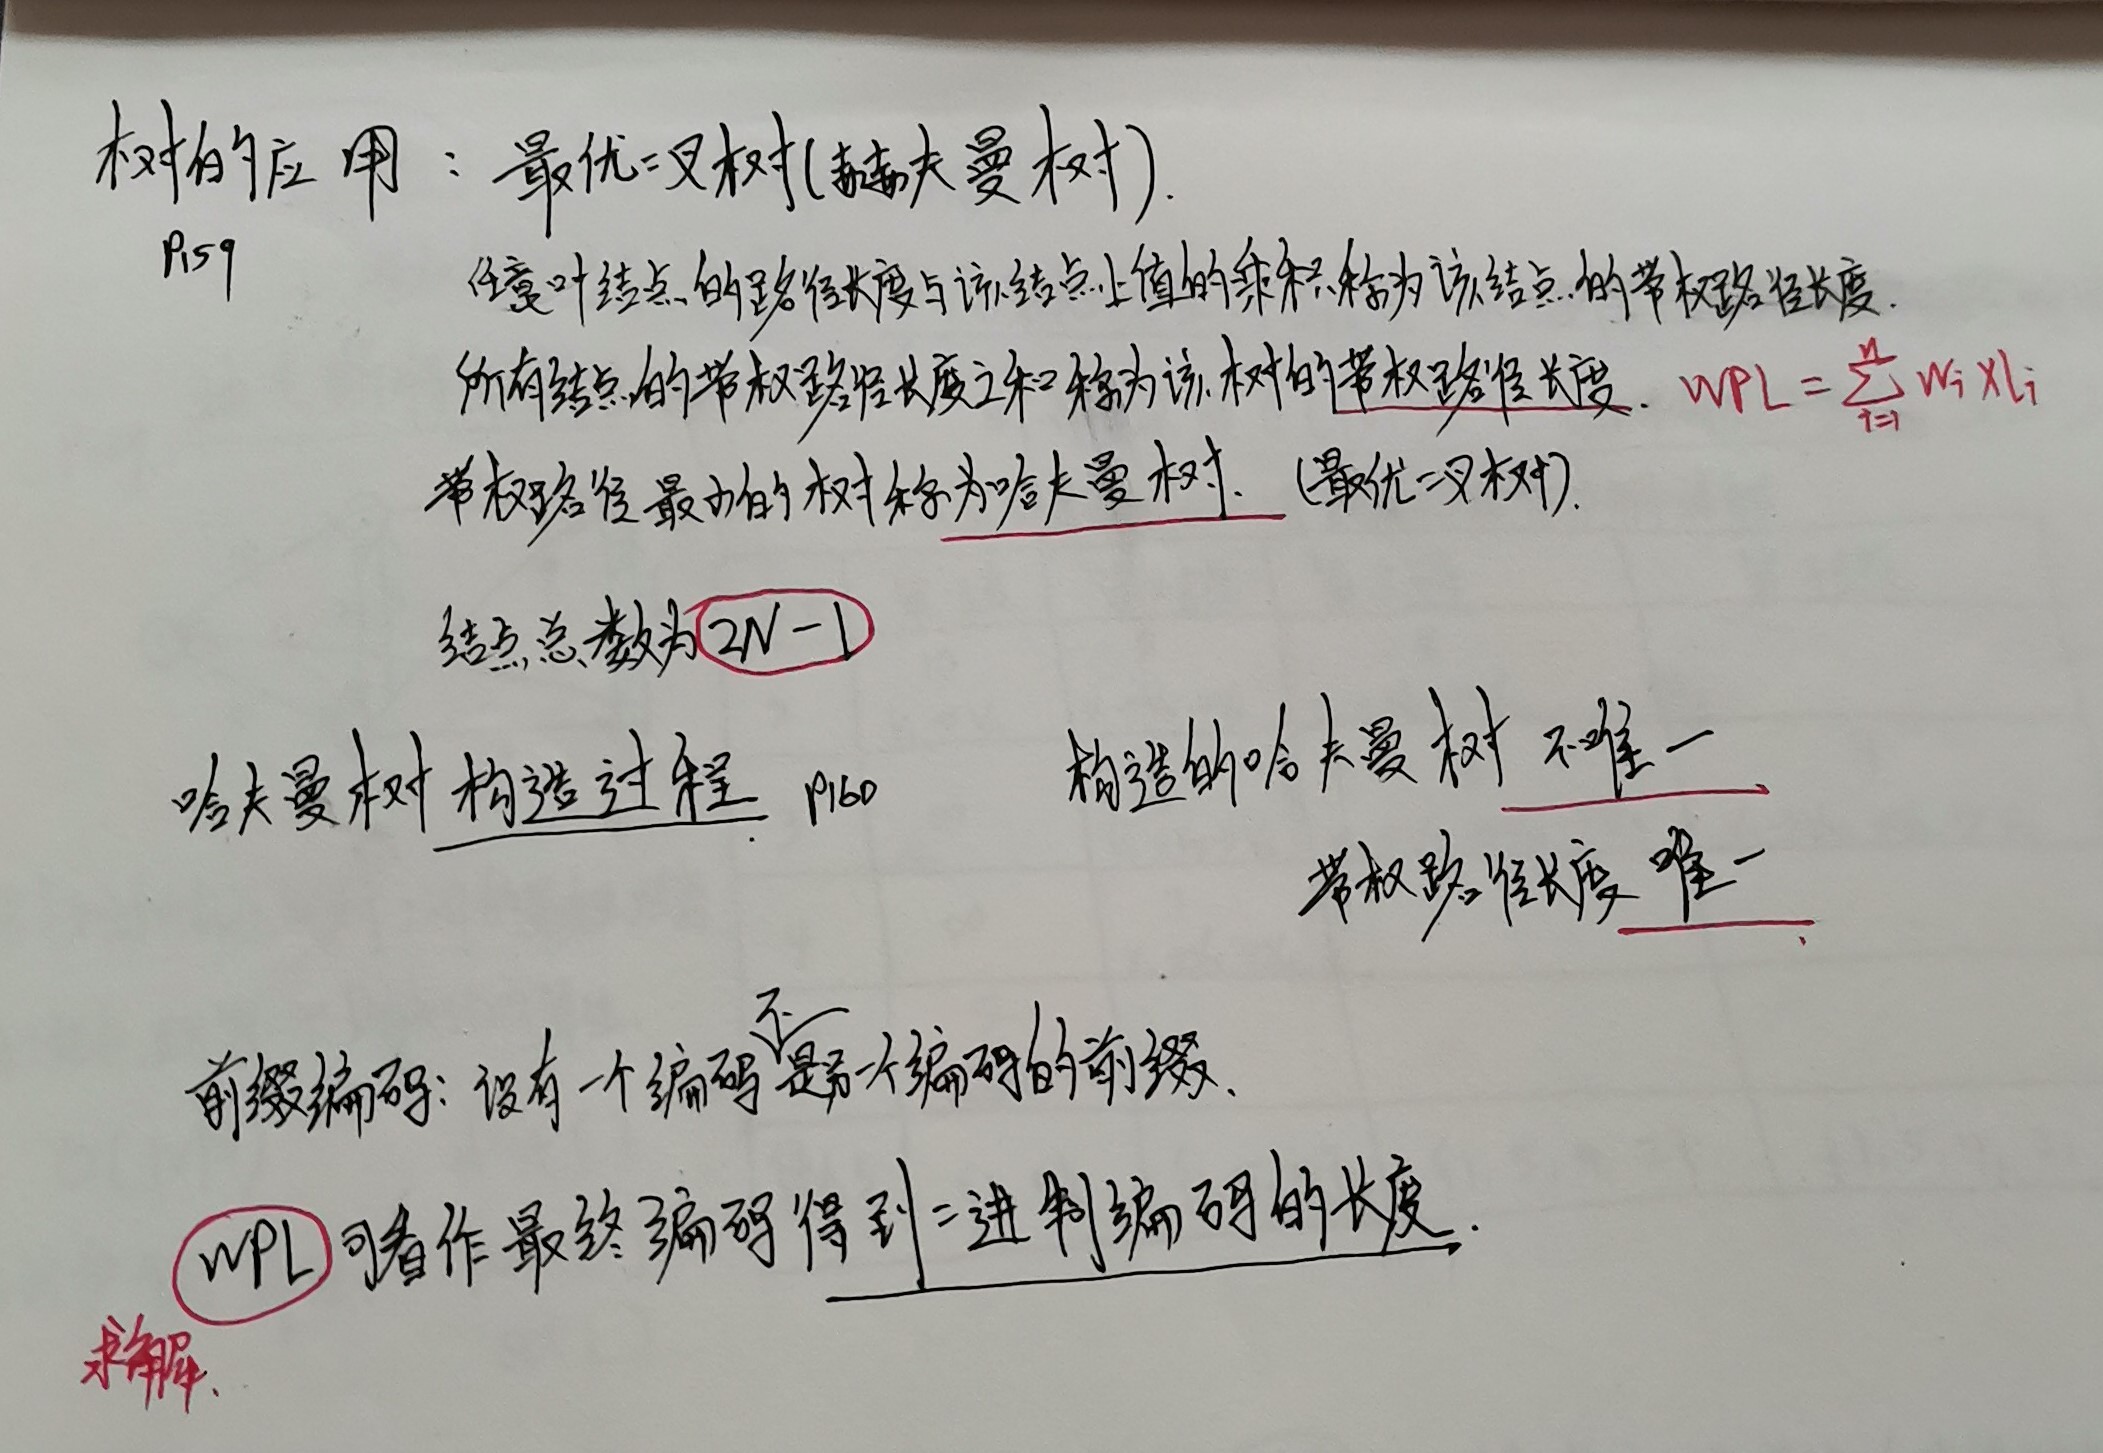 树的应用：最优二叉树(赫夫曼树).
P159
任意叶结点的路径长度与该结点上值的乘积称为该结点的带权路径长度.
所有结点的带权路径长度之和称为该树的带权路径长度. WPL = \sum_{i=1}^{n} Wi×li
带权路径最小的树称为哈夫曼树. (最优二叉树).
结点总数为 2N-1
哈夫曼树构造过程. P160 构造的哈夫曼树不唯一
带权路径长度唯一.
前缀编码：没有一个编码不是另一个编码的前缀.
WPL 可看作最终编码得到二进制编码的长度.
求解.